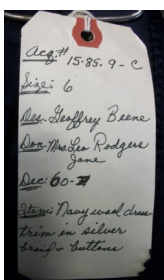 Acq.# 15.85.9-C
Size: 6
Des. Geoffrey Beene
Don. Mrs. Leo Rodgers
Jane
Dec: 60-
Item: Navy wool dress
trim in silver
braid + buttons